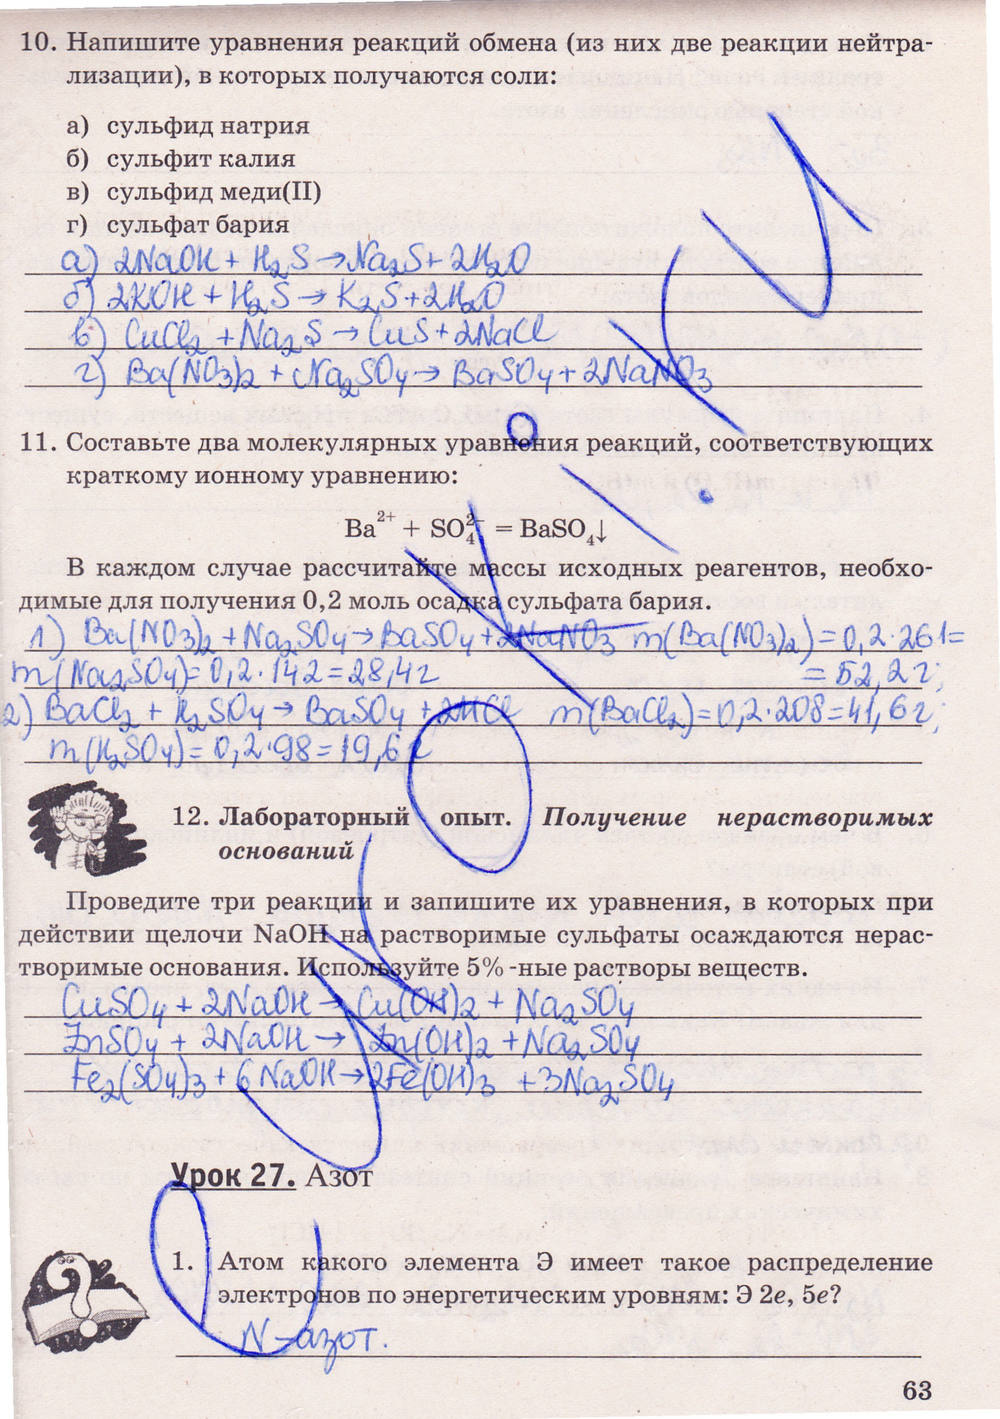 10. Напишите уравнения реакций обмена (из них две реакции нейтра-
лизации), в которых получаются соли:
а) сульфид натрия
б) сульфит калия
в) сульфид меди(II)
г) сульфат бария
а) 2NaOH + H₂S → Na₂S + 2H₂O
б) 2KOH + H₂S → K₂S + 2H₂O
в) CuCl₂ + Na₂S → CuS + 2NaCl
г) Ba(NO₃)₂ + Na₂SO₄ → BaSO₄ + 2NaNO₃
11. Составьте два молекулярных уравнения реакций, соответствующих
краткому ионному уравнению:
Ba²⁺ + SO₄²⁻ = BaSO₄↓
В каждом случае рассчитайте массы исходных реагентов, необхо-
димые для получения 0,2 моль осадка сульфата бария.
1) Ba(NO₃)₂ + Na₂SO₄ → BaSO₄ + 2NaNO₃ m(Ba(NO₃)₂) = 0,2·261 =
m(Na₂SO₄) = 0,2·142 = 28,4г = 52,2г;
2) BaCl₂ + H₂SO₄ → BaSO₄ + 2HCl m(BaCl₂) = 0,2·208 = 41,6г;
m(H₂SO₄) = 0,2·98 = 19,6г
12. Лабораторный опыт. Получение нерастворимых
оснований
Проведите три реакции и запишите их уравнения, в которых при
действии щелочи NaOH на растворимые сульфаты осаждаются нерас-
творимые основания. Используйте 5% -ные растворы веществ.
CuSO₄ + 2NaOH → Cu(OH)₂ + Na₂SO₄
ZnSO₄ + 2NaOH → Zn(OH)₂ + Na₂SO₄
Fe₂(SO₄)₃ + 6NaOH → 2Fe(OH)₃ + 3Na₂SO₄
Урок 27. Азот
1. Атом какого элемента Э имеет такое распределение
электронов по энергетическим уровням: Э 2e, 5e?
N – азот.
63